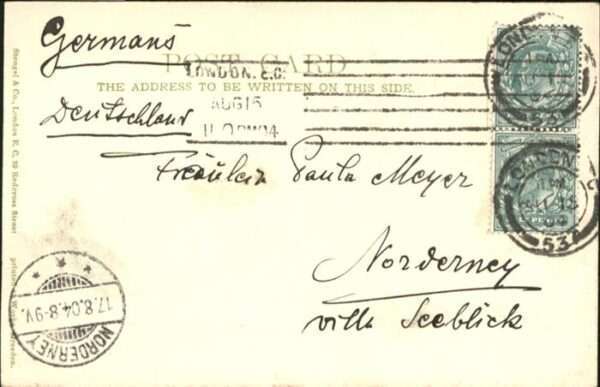 Germany
POST CARD
LONDON. E.C.
THE ADDRESS TO BE WRITTEN ON THIS SIDE.
AUG 15
Deutschland
Fräulein Paula Meyer
Norderney
villa Seeblick
LONDON
53A
LONDON
04
53A
17.8.04.8-9V.
NORDERNEY
Stengel & Co., London E. C. 39 Redcross Street